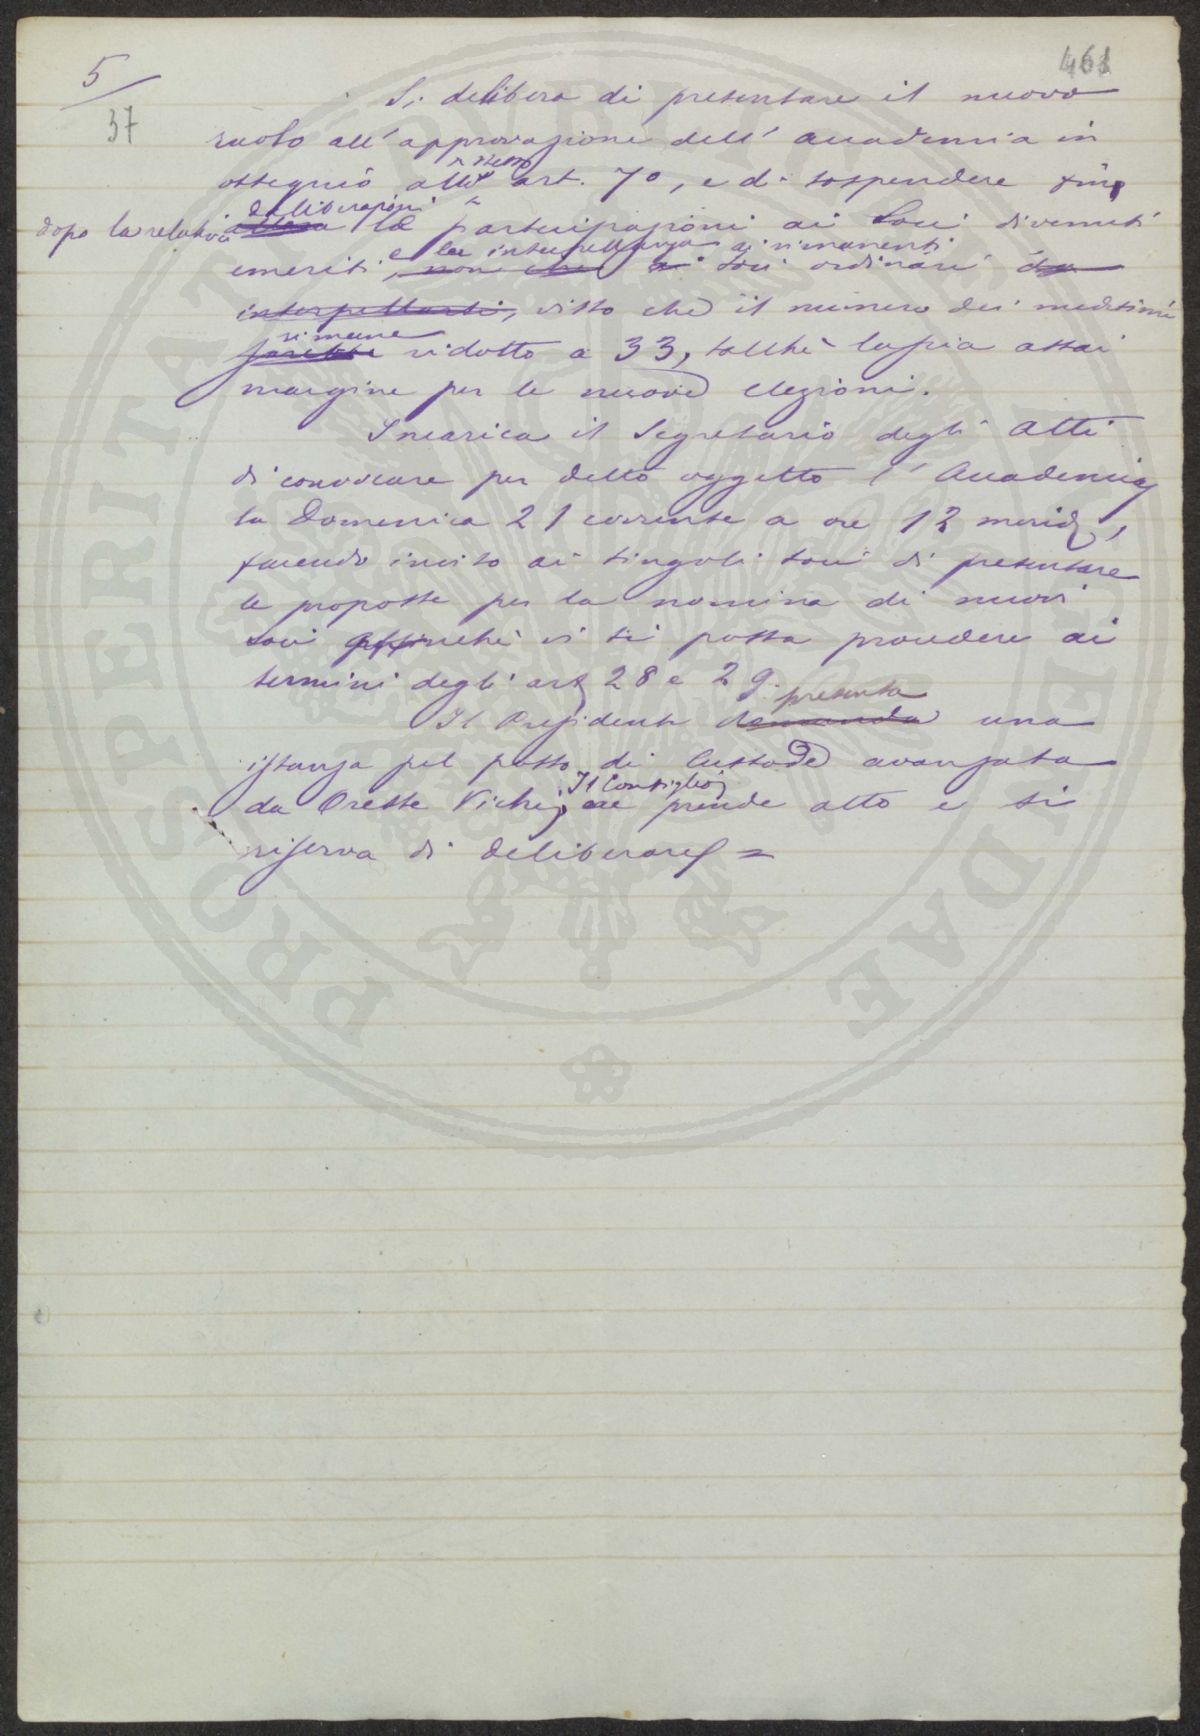 5
461
37
Si delibera di presentare il nuovo
ruolo all'approvazione dell'Accademia in
stesso
ossequio allo art. 7°, e di sospendere fin
deliberazioni
dopo la relativa la partecipazioni ai Soci divenuti
e la interpellanza ai rimanenti
emeriti, non che ai soci ordinari da
interpellarsi, visto che il numero dei medesimi
rimane
sarebbe ridotto a 33, talchè lascia assai
margine per le nuove elezioni.
Incarica il Segretario degli Atti
di convocare per detto oggetto l'Accademia
la Domenica 21 corrente a ore 12 merid,
facendo invito ai singoli soci di presentare
le proposte per la nomina di nuovi
soci affinchè vi si possa provvedere ai
termini degli art 28 e 29.
presenta
Il Presidente domanda una
istanza pel posto di Custode avanzata
Il Consiglio
da Oreste Vichi, ne prende atto e si
riserva di deliberare =
PROSPERITATI PVBLICAE